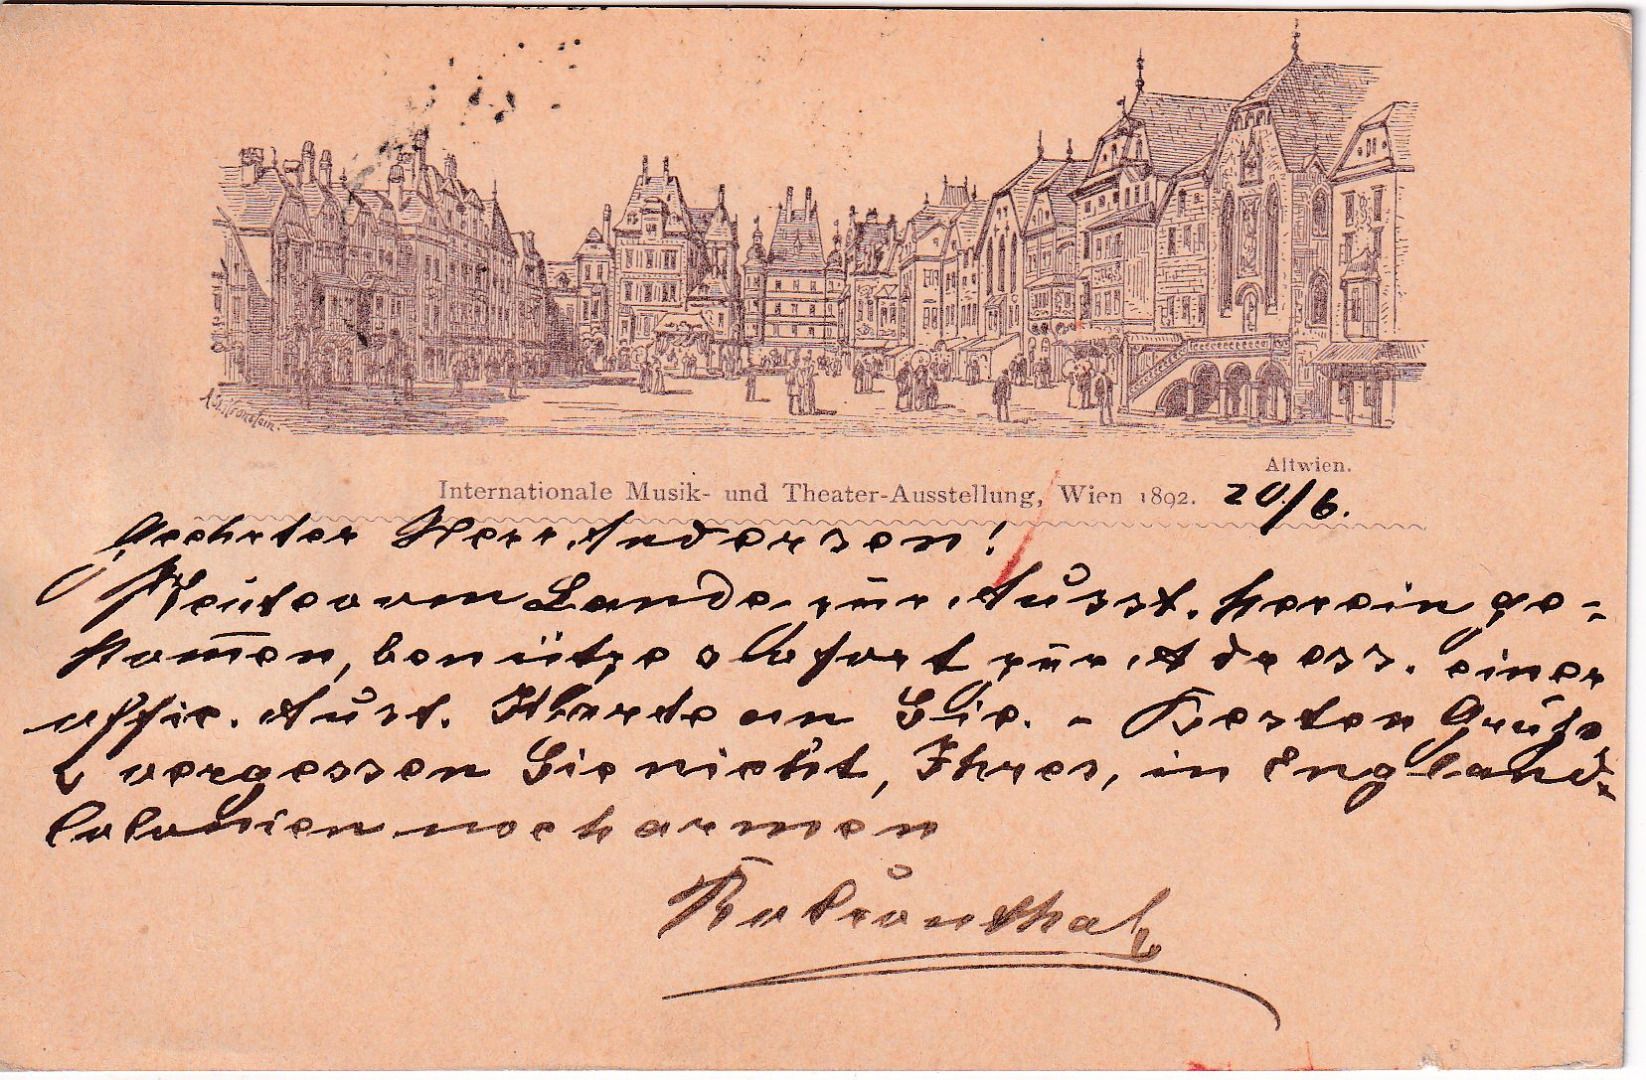 Altwien.
Internationale Musik- und Theater-Ausstellung, Wien 1892. 20/6.
Geehrter Herr Andersen!
Heute vom Lande zur Ausst. herein ge-
kom̅en, benütze sofort zur Adress. einer
offic. Aust. Karte an Sie. - Besten Gruß
vergessen Sie nicht, Ihres, in England-
Colonien noch armen